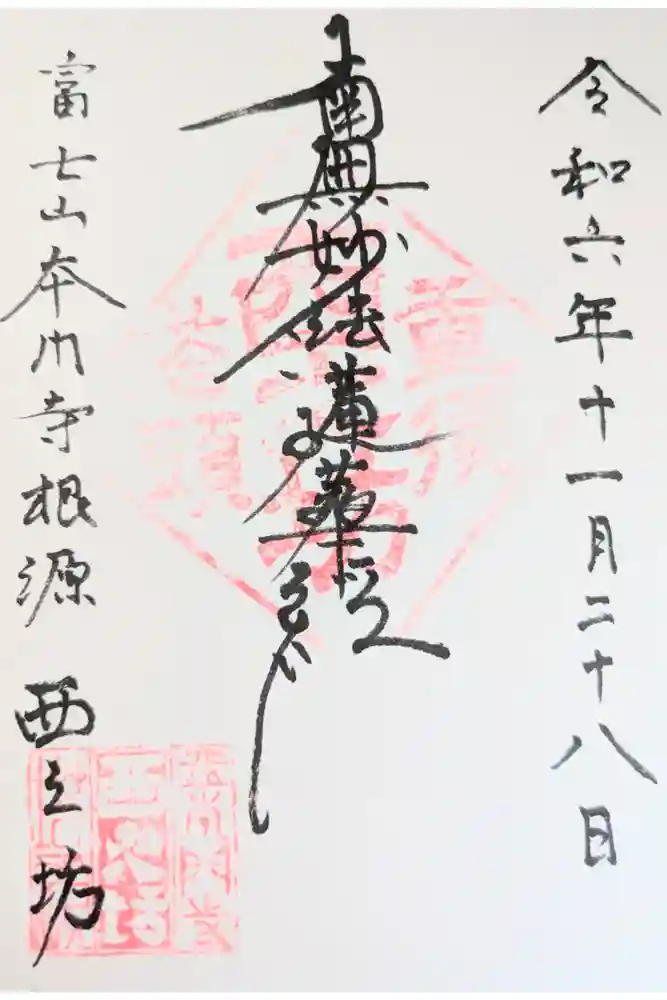 令和六年十一月二十八日
南無妙法蓮華経
富士山本門寺根源 西之坊